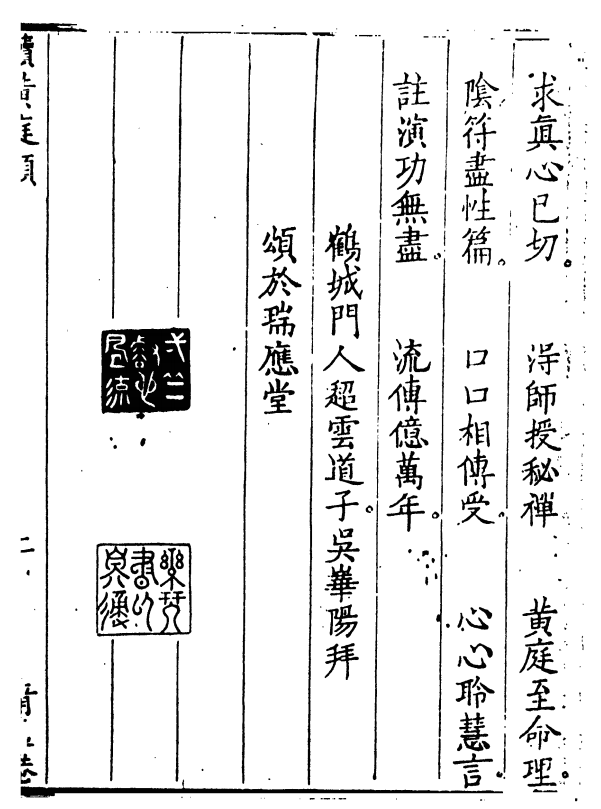 求眞心已切。 淂師授秘禪 黄庭至命理。
陰符盡性篇。 口口相傳受。 心心聆慧言。
註演功無盡。 流傳億萬年。
鶴城門人超雲道子。吳崋陽拜
頌於瑞應堂
樂琴書以
黃庭
二